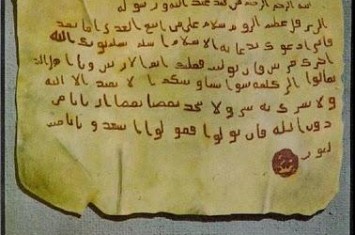 الرحمن الرحيم من محمد عبد الله ورسوله
الى هرقل عظيم الروم سلام على من اتبع الهدى اما بعد
فانى ادعوك بدعاية الاسلام اسلم تسلم يوتك الله
اجرك مرتين فان توليت فعليك اثم الاريسيين ويا اهل
تعالوا الى كلمة سوا بيننا وبينكم الا نعبد الا الله
ولا نشرك به شيا ولا يتخذ بعضنا بعضا اربابا من
دون الله فان تولوا فقولوا اشهدوا بانا